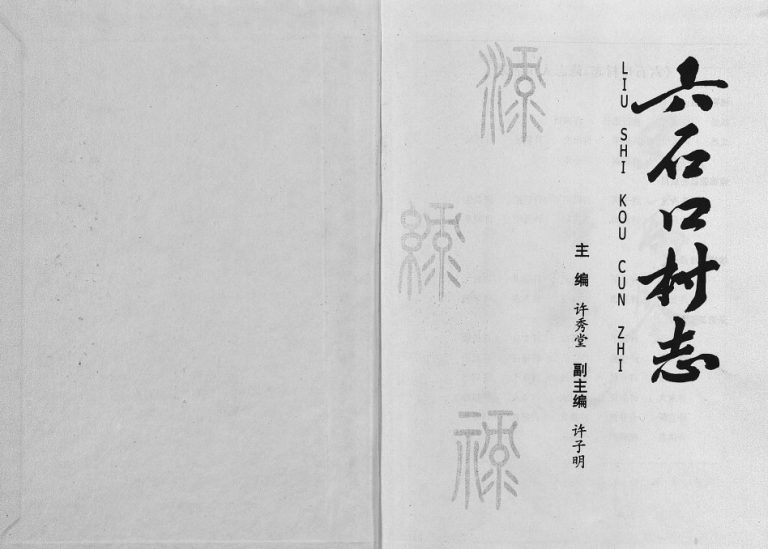 六石口村志
LIU SHI KOU CUN ZHI
主编 许秀堂 副主编 许子明